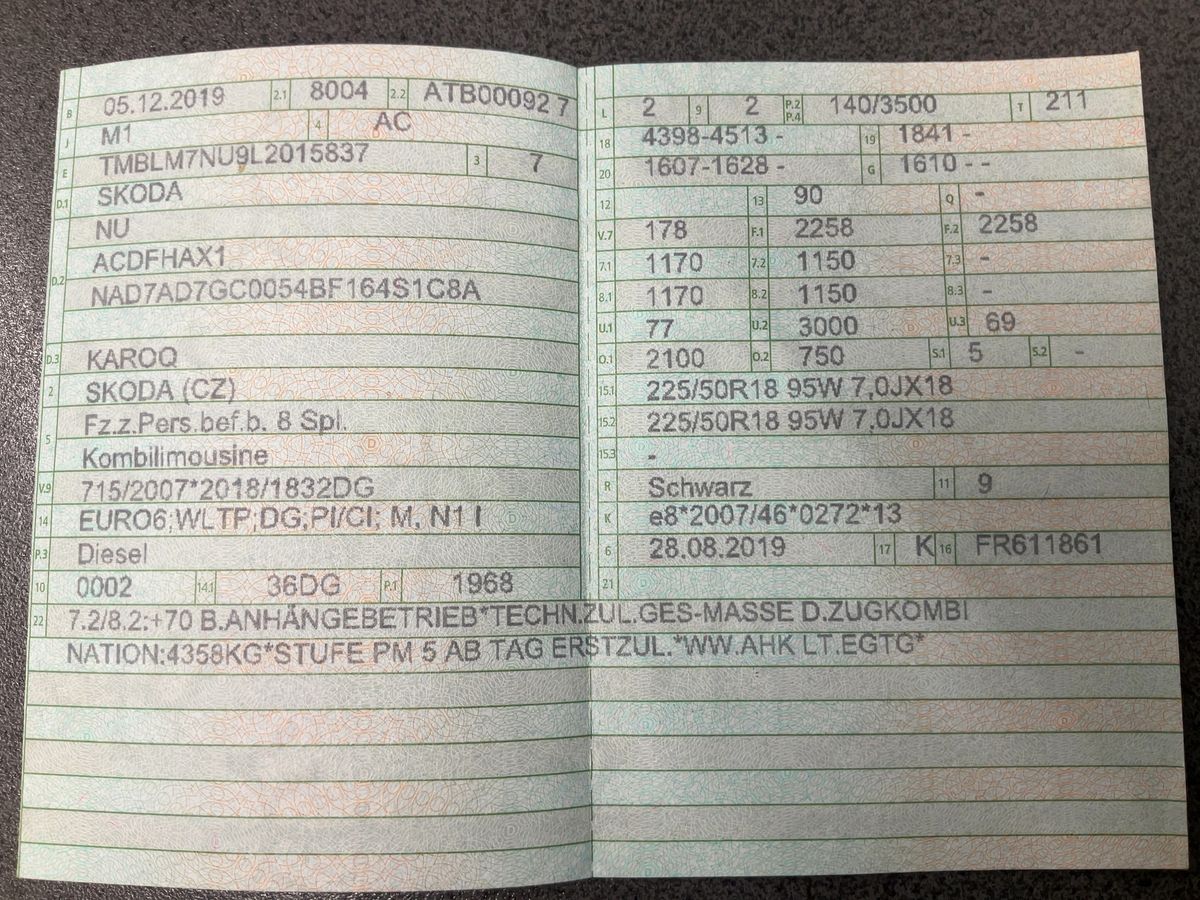 B 05.12.2019 2.1 8004 2.2 ATB00092 7
J M1 4 AC
E TMBLM7NU9L2015837 3 7
D.1 SKODA
NU
D.2 ACDFHAX1
NAD7AD7GC0054BF164S1C8A
D.3 KAROQ
2 SKODA (CZ)
5 Fz.z.Pers.bef.b. 8 Spl.
Kombilimousine
V.9 715/2007*2018/1832DG
14 EURO6;WLTP;DG;PI/CI; M, N1 I
P.3 Diesel
10 0002 14.1 36DG P.1 1968
L 2 9 2 P.2 P.4 140/3500 T 211
18 4398-4513 - 19 1841 -
20 1607-1628 - G 1610 - -
12 13 90 Q -
V.7 178 F.1 2258 F.2 2258
7.1 1170 7.2 1150 7.3 -
8.1 1170 8.2 1150 8.3 -
U.1 77 U.2 3000 U.3 69
O.1 2100 O.2 750 S.1 5 S.2 -
15.1 225/50R18 95W 7,0JX18
15.2 225/50R18 95W 7,0JX18
15.3 -
R Schwarz 11 9
K e8*2007/46*0272*13
6 28.08.2019 17 K 16 FR611861
21
22 7.2/8.2:+70 B.ANHÄNGEBETRIEB*TECHN.ZUL.GES-MASSE D.ZUGKOMBI
NATION:4358KG*STUFE PM 5 AB TAG ERSTZUL.*WW.AHK LT.EGTG*